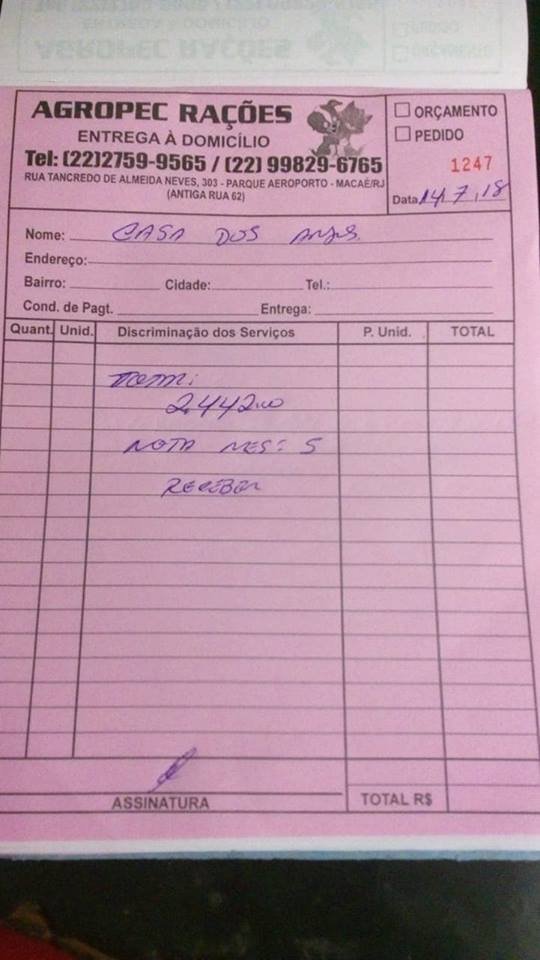 AGROPEC RAÇÕES
ENTREGA À DOMICÍLIO
Tel: (22)2759-9565 / (22) 99829-6765
RUA TANCREDO DE ALMEIDA NEVES, 303 - PARQUE AEROPORTO - MACAÉ/RJ
(ANTIGA RUA 62)
ORÇAMENTO
PEDIDO
1247
Data 14,7,18
Nome: CASA DOS ANJOS
Endereço:
Bairro: Cidade: Tel.:
Cond. de Pagt. Entrega:
Quant. Unid. Discriminação dos Serviços P. Unid. TOTAL
2.442,00
NOTA MES: 5
RECEBER
ASSINATURA TOTAL R$